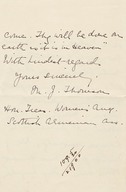 come. Thy will be done on
earth as it is in Heaven"
With kindest regards
Yours sincerely
M. J. Thomson
Hon. Treas. Women's Aux.
Scottish Armenian Ass.